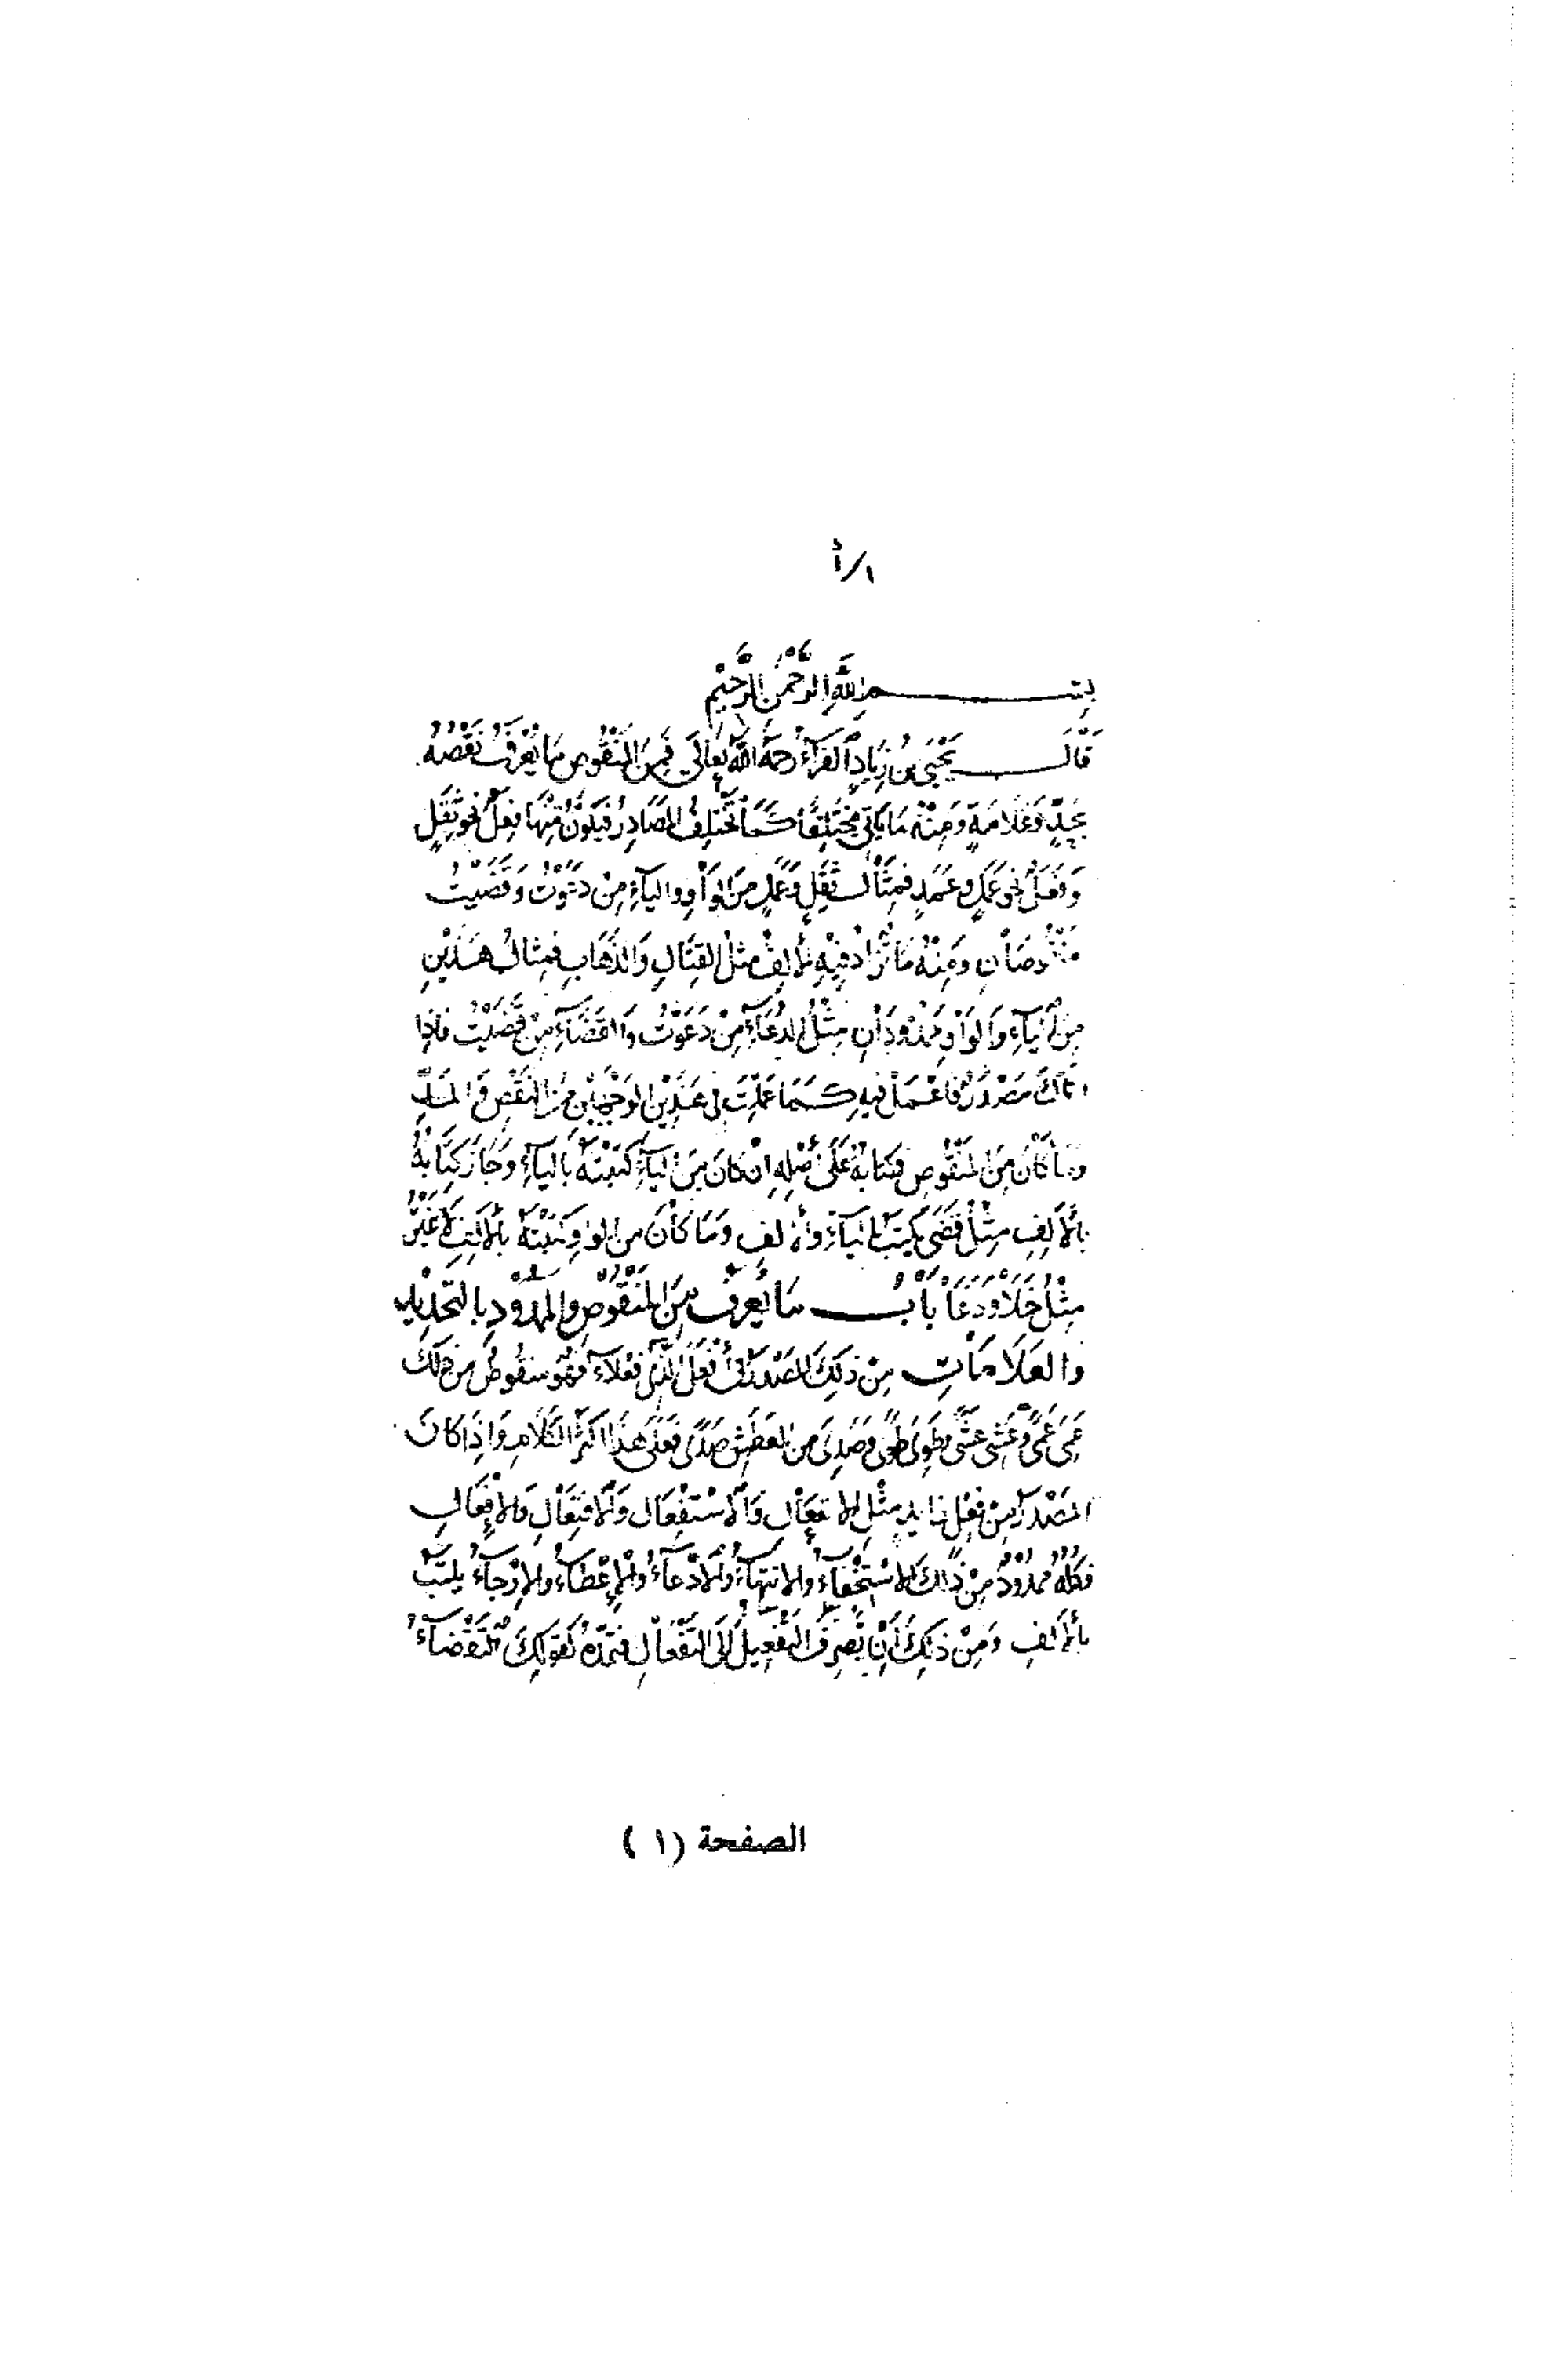 ١/أ
بِسْمِ اللَّهِ الرَّحْمَنِ الرَّحِيْمِ
قَالَ يَحْيَى بْنُ زِيَادٍ الفَرَّآءُ رحمَهُ اللهُ تعَالَى فَمِنَ المَنْقُوصِ مَا يُعْرَفُ نَقْصُهُ
بِحَدٍّ وَعَلَامَةٍ وَمِنْهُ مَا يَأتِي مُخْتَلِفًا كَمَا تَخْتَلِفُ المَصَادِرُ فَيَكُونُ مِنْهَا فِعَلٌ نَحْوُ ثِقَلٍ
وَفَعَلٌ نَحْوُ عَمَلٍ وَعَمَدٍ فَمِثَالُ ثِقَلٍ وَعَمَلٍ مِنَ الوَاوِ والياءِ مِنْ دَعَوْتُ وَقَضَيْتُ
مَنْقُوصَانِ وَمِنْهُ مَا تُزَادُ فِيْهِ الأَلِفُ مثْلُ القِتَالِ وَالذَّهَابِ فمِثَالُ هَذَيْنِ
مِنَ اليَآءِ وَالوَاوِ مَمْدُودَانِ مِثْلُ الدُعَآءِ مِنْ دَعَوْتُ وَالقَضَآءِ مِنْ قَضَيْتُ فَإِذَا
أتَاكَ مَصْدَرٌ فَاعْمَلْ فِيهِ كَمَا عَمِلْتَ فِي هَذَيْنِ الوَجْهَيْنِ مِنَ النَّقْصِ وَالمَدِّ
وَمَا كَانَ مِنَ المَنْقُوصِ فكِتَابُهُ عَلَى أَصْلِهِ إِنْ كَانَ مِنَ اليَآءِ كَتَبْتَهُ بِاليَآءِ وَجَازَ كِتَابُهُ
بِالأَلِفِ مِثْلُ قَضَى يُكتَبُ بِاليَآءِ وَالأَلِفِ وَمَا كَانَ مِنَ الوَاوِ كَتَبْتَهُ بِالأَلِفِ لَا غَيْرُ
مِثْلُ خَلَا وَدَعَا بَابُ مَا يُعرَفُ مِنَ المَنْقُوصِ وَالمَمْدُودِ بِالتَّحْدِيدِ
وَالعَلَامَاتِ مِنْ ذَلِكَ المَصْدَرُ فِي أَفْعَلَ الَّذِي فَعْلَاءُ فَهُوَ مَنقُوصٌ مِنْ ذَلِكَ
عَمِيَ عَمًى وَعَشِيَ عَشًى وَطَوِيَ طَوًى وَصَدِيَ مِنَ العَطَشِ صَدًى فَعَلَى هَذَا أَكْثَرُ الكَلَامِ وَإِذَا كَانَ
المَصْدَرُ مِنْ فِعْلٍ زَايِدٍ مِثْلِ الانفِعَالِ وَالاسْتِفْعَالِ وَالافْتِعَالِ وَالإِفْعَالِ
فَكُلُّهُ مَمْدُودٌ مِنْ ذَلِكَ الاسْتِخْفَآءُ وَالانتِهَآءُ وَالادِّعَآءُ وَالإِعْطَآءُ وَالإِرْجَآءُ يُكتَبُ
بِالأَلِفِ وَمِنْ ذَلِكَ أَنْ تَصْرِفَ التَّفْعِيْلَ إِلَى التَّفْعَالِ فَتَمُدَّهُ كَقَوْلِكَ التَّقْضَآءُ
الصفحة (١)